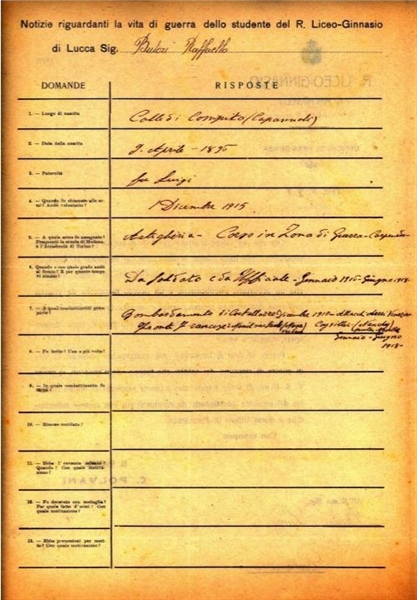 Notizie riguardanti la vita di guerra dello studente del R. Liceo-Ginnasio
di Lucca Sig. Raffaello
DOMANDE RISPOSTE
1. — Luogo di nascita Colle di Compito (Capannori)
2. — Data della nascita 9. Aprile - 1895
3. — Paternità fu Luigi
4. — Quando fu chiamato alle armi? Andò volontario? 1 Dicembre 1915
5. — A quale arma fu assegnato? Frequentò la scuola di Modena o l'Accademia di Torino? Artiglieria - Corso in Zona di Guerra -
6. — Quando e con quale grado andò al fronte? E per quanto tempo vi rimase? Da soldato e da Ufficiale - Gennaio 1916 - Giugno 1918 -
7. — A quali combattimenti prese parte? Bombardamento di
Fronte Francese
Gennaio - Giugno
1918 -
8. — Fu ferito? Una o più volte?
9. — In quale combattimento fu ferito?
10. — Rimase mutilato?
11. — Ebbe l'encomio solenne? Quando? Con quale motivazione?
12. — Fu decorato con medaglia? Per quale fatto d'armi? Con quale motivazione?
13. — Ebbe promozioni per merito? Con quale motivazione?